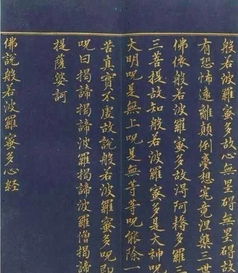 般若波羅蜜多故心無罣礙無罣礙故
有恐怖遠離顛倒夢想究竟涅槃三
佛依般若波羅蜜多故得阿耨多羅
三菩提故知般若波羅蜜多是大神呪
大明呪是無上呪是無等等呪能除一
苦真實不虛故說般若波羅蜜多呪即
呪曰揭諦揭諦波羅揭諦波羅僧揭諦
提薩婆訶
佛說般若波羅蜜多心經